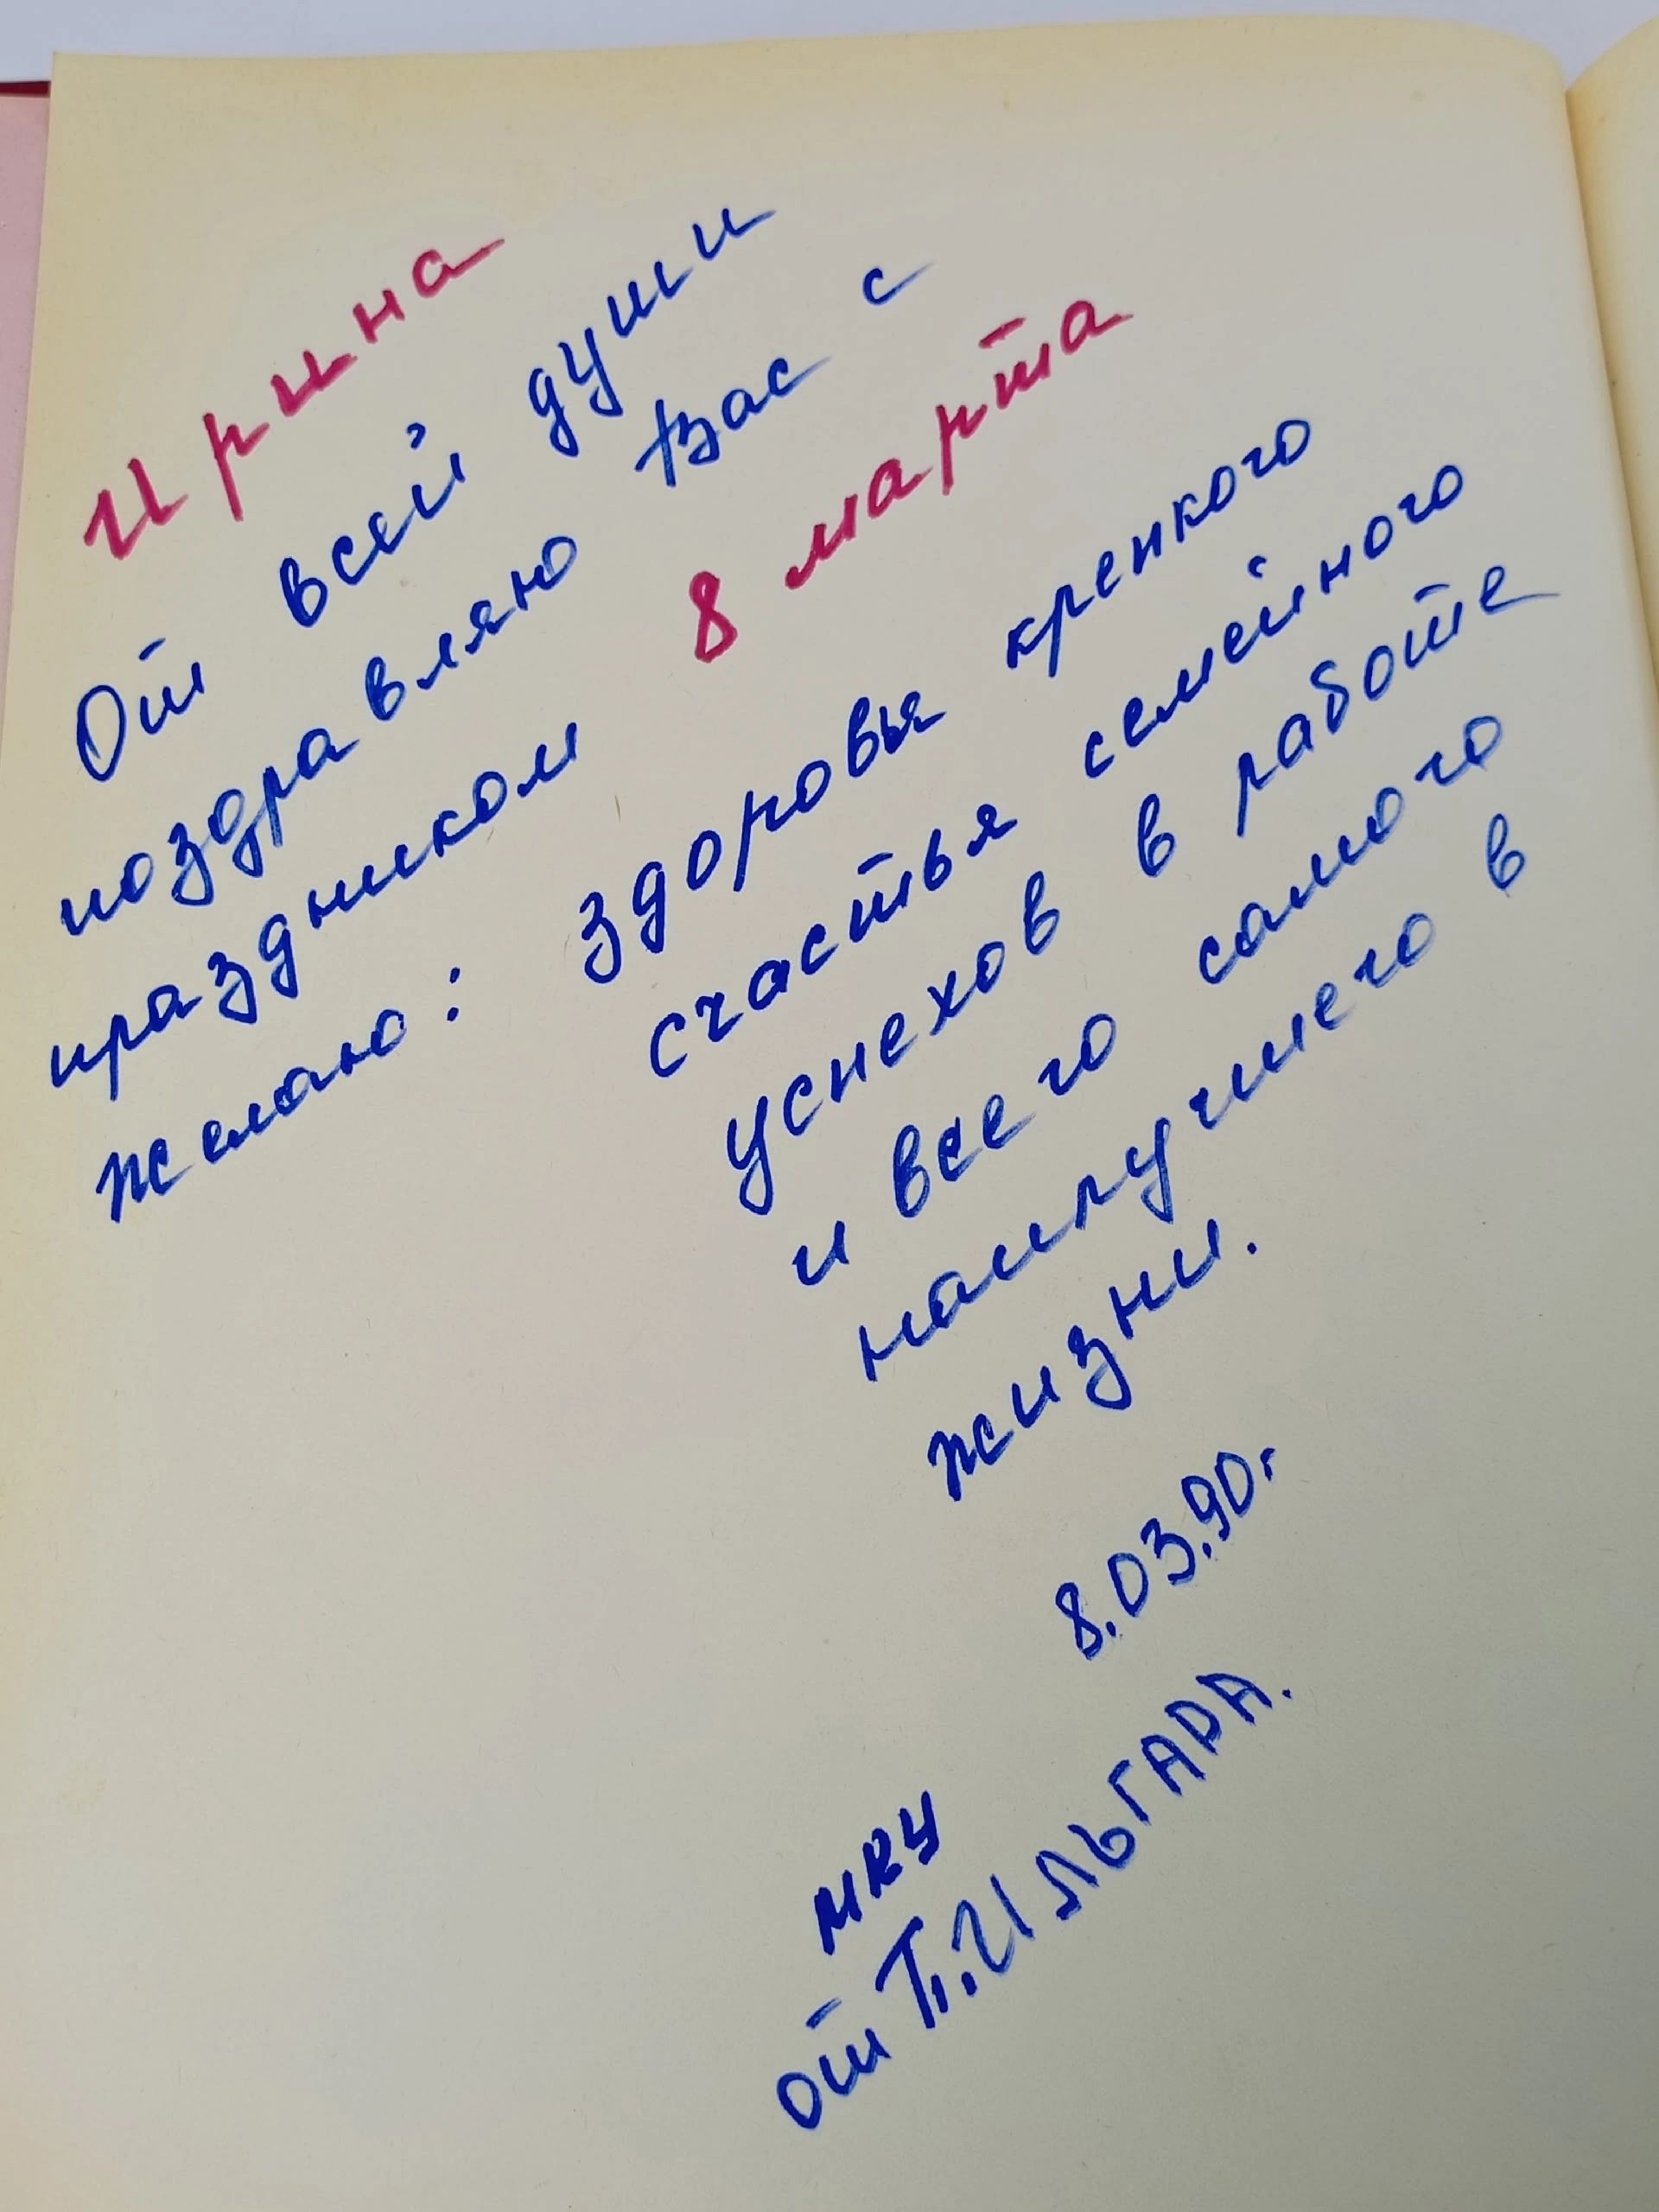 Ирина
От всей души
поздравляю Вас с
праздником 8 марта
желаю: здоровья крепкого
счастья семейного
успехов в работе
и всего самого
наилучшего в
жизни.
8.03.90г
МКУ
от П.ИЛЬГАРА.